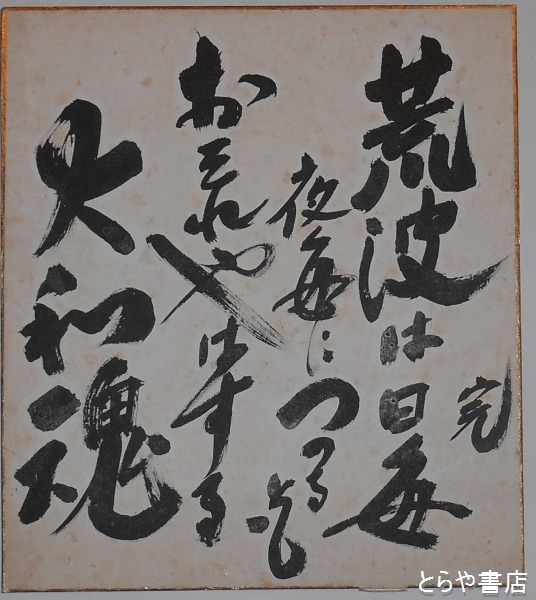 完
荒波は日毎
夜毎につのるとも
おそれやはする
大和魂
とらや書店